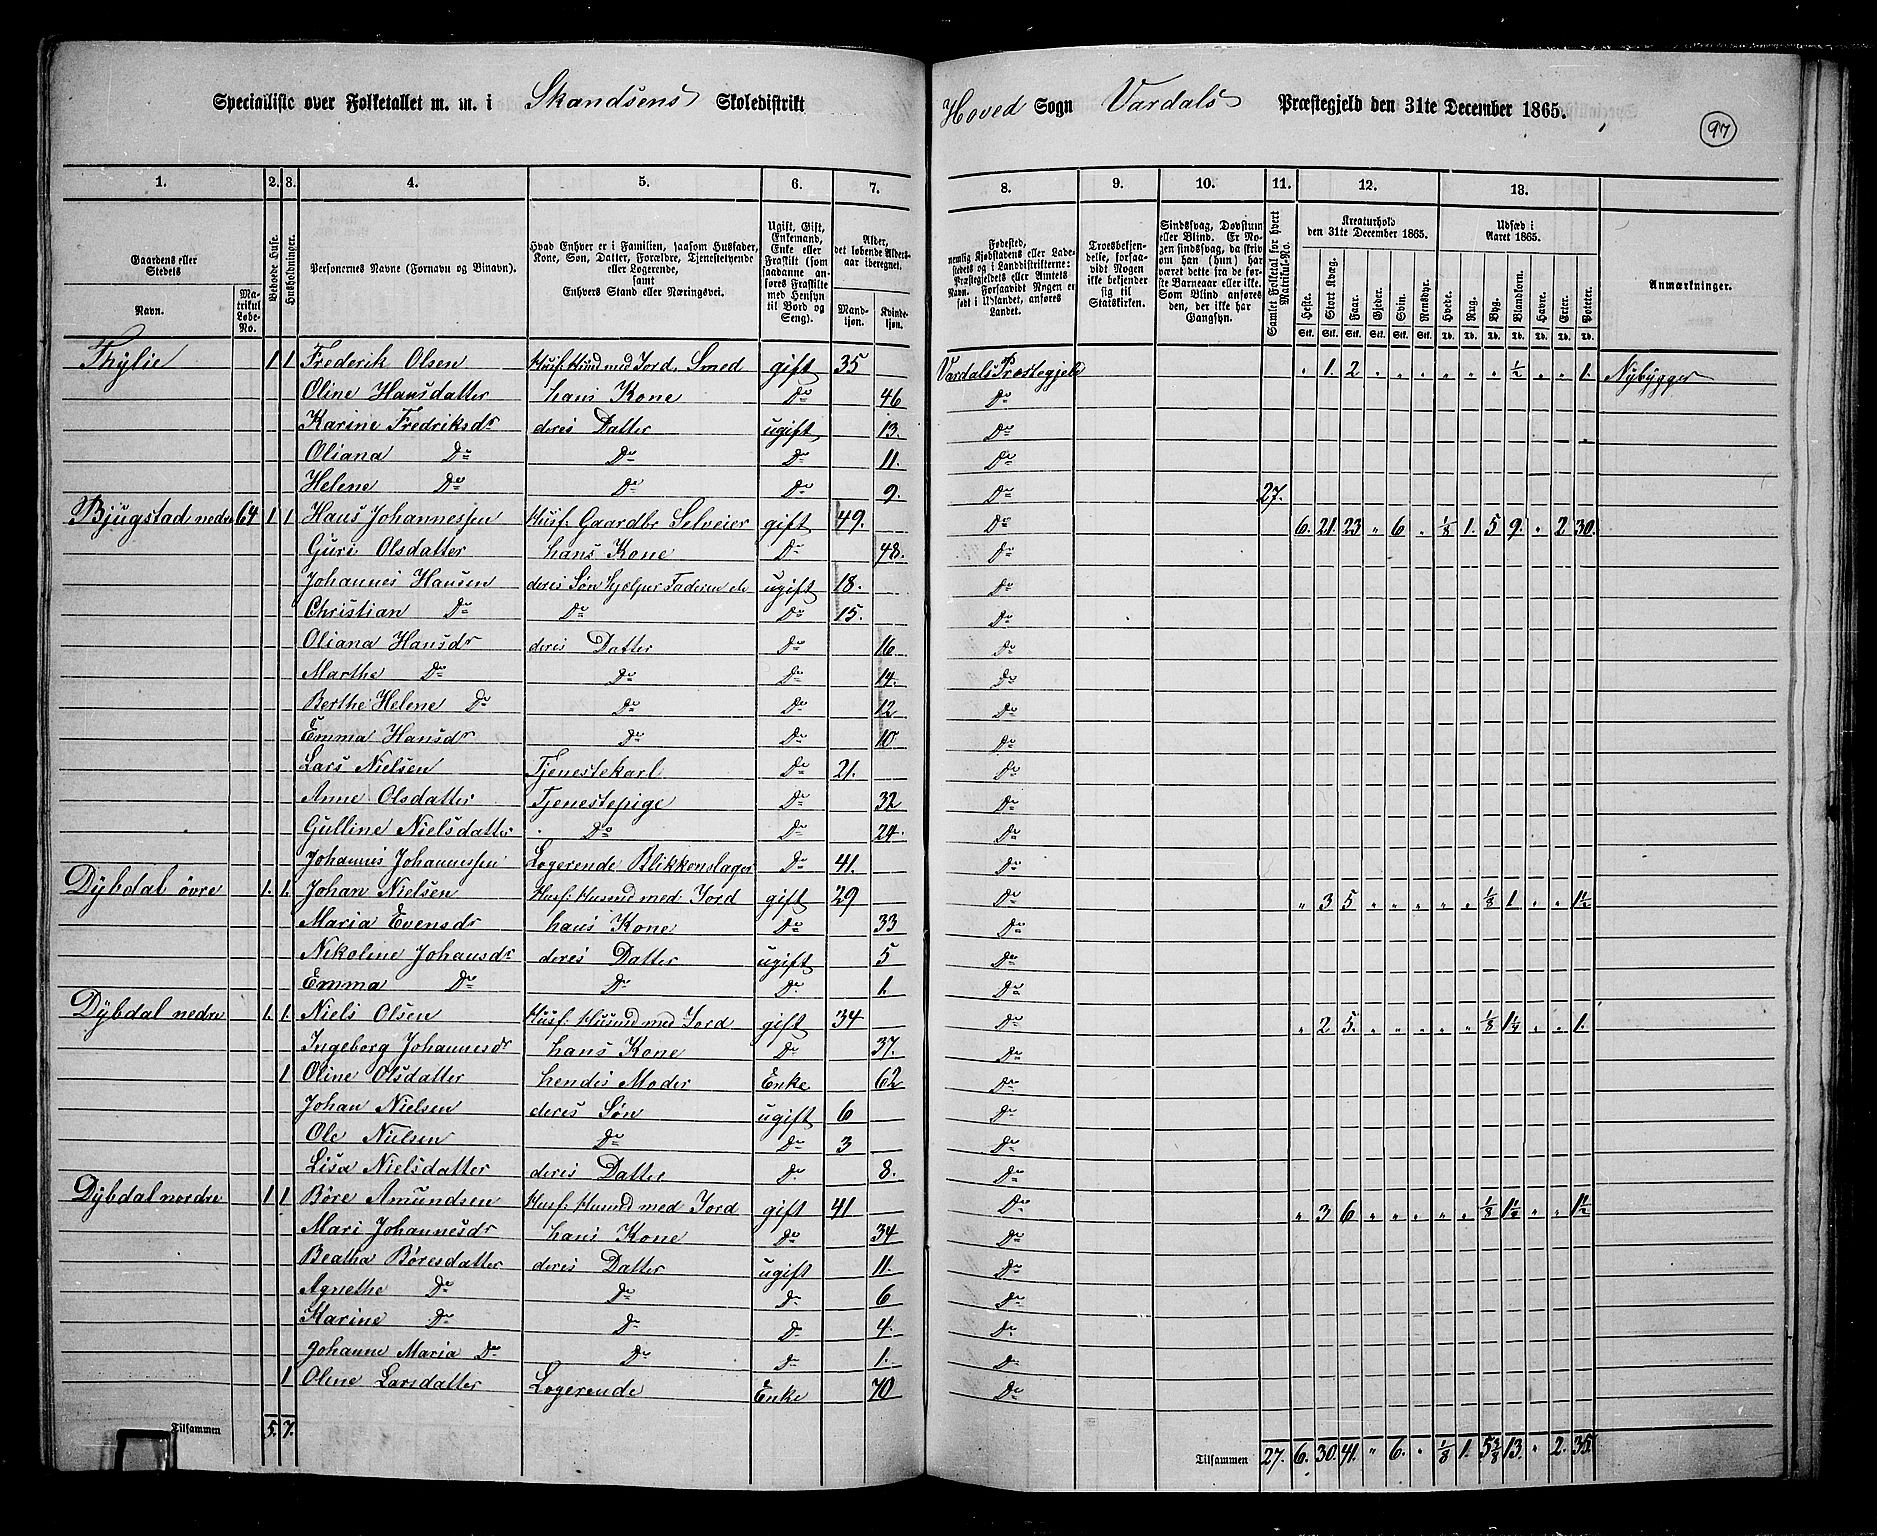 Specialliste over Folketallet m. m. i Skandsens Skoledistrikt Hoved Sogn Vardals Præstegjeld den 31te December 1865.
97
1. 2. 3. 4. 5. 6. 7. 8. 9. 10. 11. 12. 13.
Gaardens eller Stedets
Navn.
Matrikul Løbe-No.
Beboede Huse.
Husholdninger.
Personernes Navne (Fornavn og Binavn).
Hvad Enhver er i Familien, saasom Husfader, Kone, Søn, Datter, Forældre, Tjenestetyende eller Logerende, samt Enhvers Stand eller Næringsvei.
Ugift, Gift, Enkemand, Enke eller Fraskilt (som saadanne anføres Fraskilte med Hensyn til Bord og Seng).
Alder, det løbende Aldersaar iberegnet.
Mandkjøn. Kvindekjøn.
Fødested, nemlig Kjøbstadens eller Ladestedets og i Landdistrikterne: Præstegjeldets eller Amtets Navn. Forsaavidt Nogen er født i Udlandet, anføres Landet.
Troesbekjendelse, forsaavidt Nogen ikke bekjender sig til Statskirken.
Sindssvag, Døvstum eller Blind. Er Nogen sindssvag, da skrives om han (hun) har været dette fra de første Barneaar eller ikke. Som Blind anføres den, der ikke har Gangsyn.
Samlet Folketal for hvert Matrikul-No.
Kreaturhold den 31te December 1865.
Heste. Stort Kvæg. Faar. Gjeder. Svin. Rensdyr.
Udsæd i Aaret 1865.
Hvede. Rug. Byg. Blandkorn. Havre. Erter. Poteter.
Anmærkninger.
Thylie 1 1 Frederik Olsen Husf: Husmd med Jord, Smed gift 35 Vardals Præstegjeld " 1. 2 " " " " " " ½ " " 1. Nybygger
Oline Hansdatter hans Kone Do 46 Do
Karine Fredriksdr deres Datter ugift 13. Do
Oliana Do Do Do 11. Do
Helene Do Do Do 9. Do 27.
Bjugstad nedre 64 1 1 Hans Johannessen Husf: Gaardbr Selveier gift 49. Do 6. 21. 23 " 6 " ⅛ 1. 5 9. " 2. 30.
Guri Olsdatter hans Kone Do 48. Do
Johannes Hansen deres Søn hjelper Faderen ugift 18. Do
Christian Do Do Do 15. Do
Oliana Hansdr deres Datter Do 16 Do
Marthe Do Do Do 14. Do
Berthe Helene Do Do Do 12 Do
Emma Hansdr Do Do 10 Do
Lars Nielsen Tjenestekarl Do 21. Do
Anne Olsdatter Tjenestepige Do 32 Do
Gulline Nielsdatter Do Do 24. Do
Johannes Johannessen Logerende Blikkenslager Do 41. Do
Dybdal övre 1. 1. Johan Nielsen Husf: Husmd med Jord gift 29 Do " 3 5 " " " " " ⅛ 1 " " 1½
Maria Evensdr hans Kone Do 33 Do
Nikoline Johansdr deres Datter ugift 5 Do
Emma Do Do Do 1. Do
Dybdal nedre 1. 1. Niels Olsen Husf: Husmd med Jord gift 34 Do " 2 5. " " " " " ⅛ 1¼ " " 1.
Ingeborg Johannesdr hans Kone Do 37. Do
1 Oline Olsdatter hendes Moder Enke 62 Do
Johan Nielsen deres Søn ugift 6 Do
Ole Nielsen Do Do 3 Do
Lisa Nielsdatter deres Datter Do 8. Do
Dybdal nordre 1 1 Børe Amundsen Husf: Husmd med Jord gift 41 Do " 3 6 " " " " " ⅛ 1½ " " 1½
Mari Johannesdr hans Kone Do 34 Do
Beatha Børesdatter deres Datter ugift 11. Do
Agnethe Do Do Do 6 Do
Karine Do Do Do 4. Do
Johanne Maria Do Do Do 1. Do
1 Oline Larsdatter Logerende Enke 70 Do
Tilsammen 5. 7. Tilsammen 27. 6. 30. 41. " 6. " ⅛ 1. 5⅜ 13. " 2. 35.